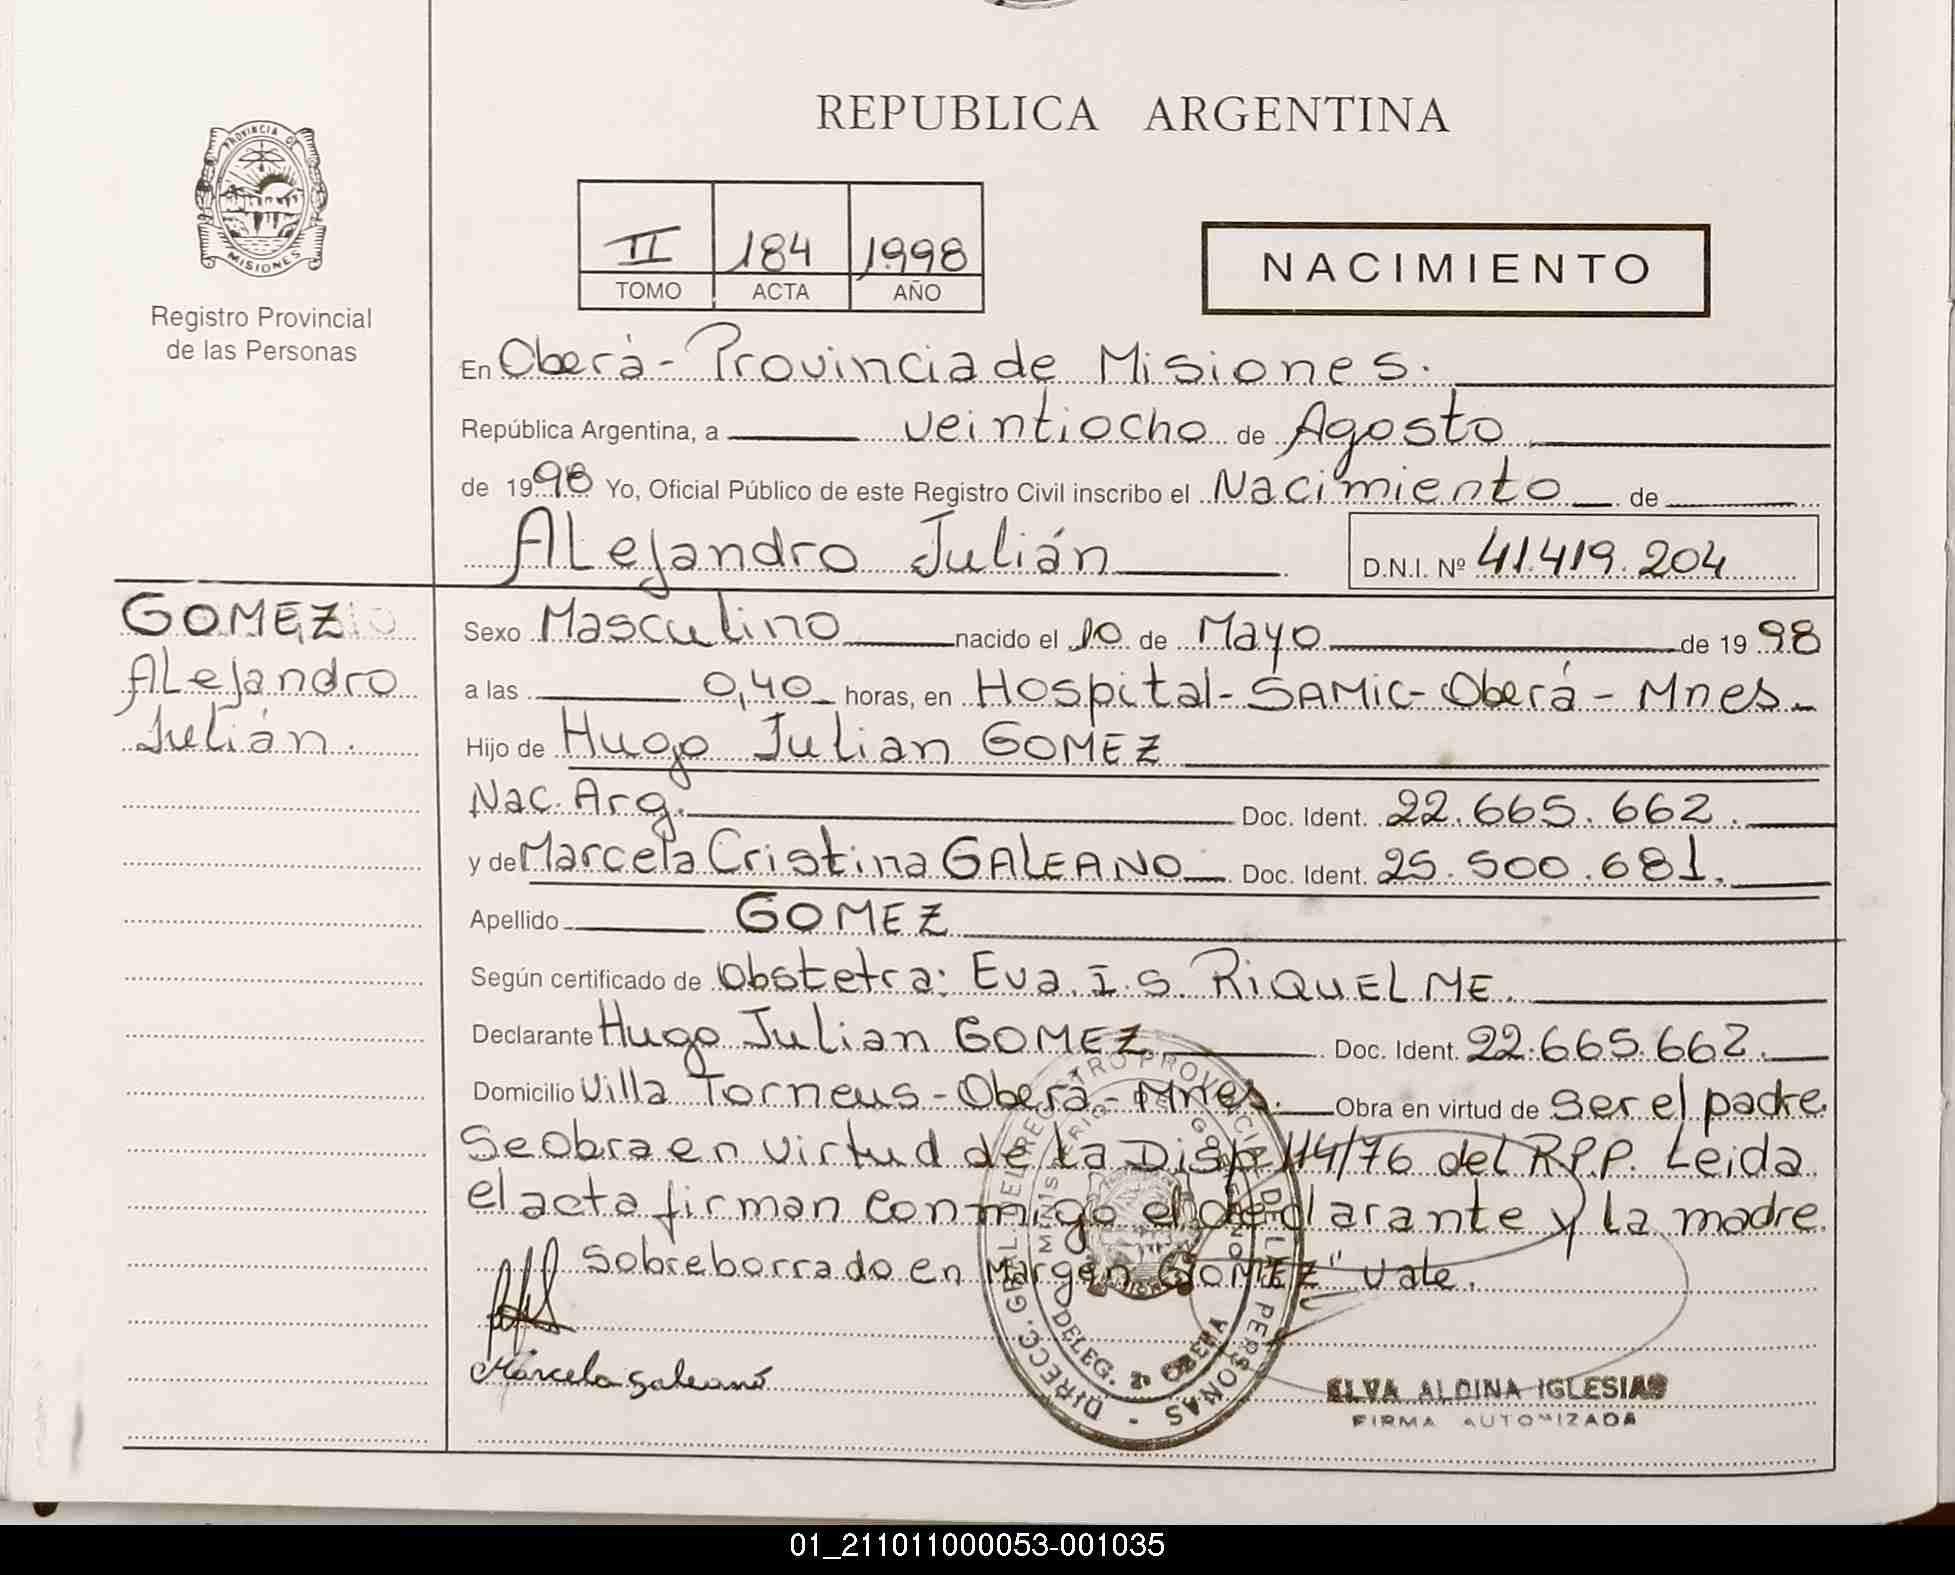 REPUBLICA ARGENTINA
PROVINCIA DE
MISIONES
Registro Provincial
de las Personas
II 184 1998
TOMO ACTA AÑO
NACIMIENTO
En Oberá - Provincia de Misiones.
República Argentina, a veintiocho de Agosto
de 1998 Yo, Oficial Público de este Registro Civil inscribo el Nacimiento de
Alejandro Julián D.N.I. Nº 41.419.204
GOMEZ
Alejandro
Julián.
Sexo Masculino nacido el 10 de Mayo de 1998
a las 0,40 horas, en Hospital - SAMIC - Oberá - Mnes.
Hijo de Hugo Julian GOMEZ
Nac. Arg. Doc. Ident. 22.665.662.
y de Marcela Cristina GALEANO Doc. Ident. 25.500.681.
Apellido GOMEZ
Según certificado de Obstetra: Eva. I. S. RIQUELME.
Declarante Hugo Julian GOMEZ Doc. Ident. 22.665.662.
Domicilio Villa Torneus - Oberá - Mnes. Obra en virtud de Ser el padre
Se obra en virtud de la Disp 114/76 del R.P.P. Leida
el acta firman conmigo el declarante y la madre.
Sobreborrado en Margen "GOMEZ" vale.
Marcela Galeano
DIRECC. GRAL. DEL REGISTRO PROVINCIAL DE LAS PERSONAS
MINISTERIO DE GOBIERNO
DELEG. OBERA
ELVA ALDINA IGLESIAS
FIRMA AUTORIZADA
01_211011000053-001035